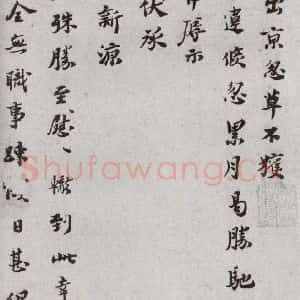 出京忽草不獲
違候忽累月曷勝馳
辱示
伏承
新涼
殊勝至慰、轍到此幸
全無職事疎日甚
Shufawang.cn